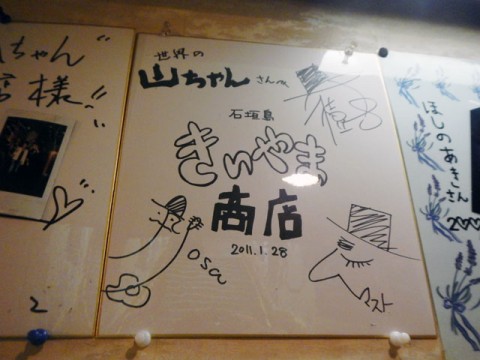 山ちゃん
様!!
2
世界の
山ちゃんさんへ
石垣島
きいやま
商店
2011.1.28
osa
マスト
ほしのあきさん